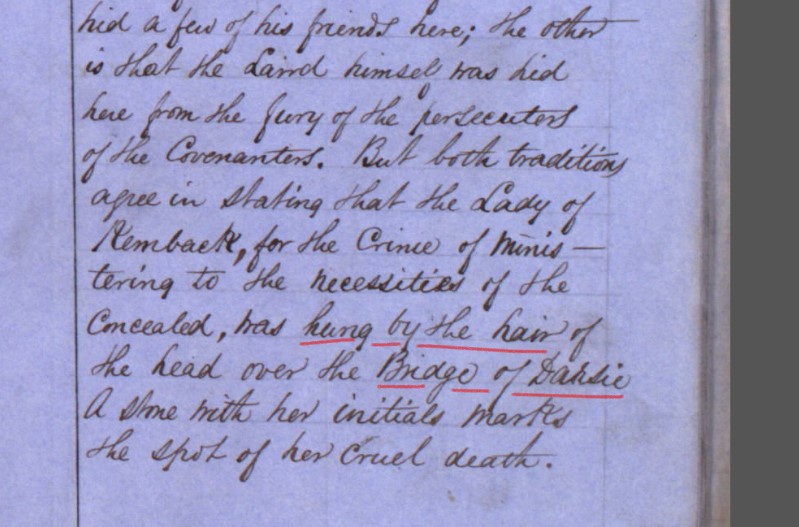 hid a few of his friends here; the other
is that the Laird himself was hid
here from the fury of the persecuters
of the Covenanters. But both traditions
agree in stating that the Lady of
Kemback, for the Crime of minis-
tering to the necessities of the
Concealed, was hung by the hair of
the head over the Bridge of Dairsie
A stone with her initials marks
the spot of her cruel death.